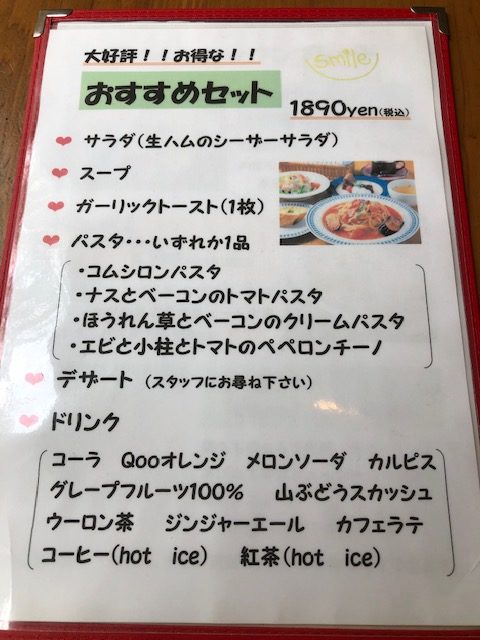 大好評！！お得な！！
smile
おすすめセット
1890yen(税込)
❤ サラダ(生ハムのシーザーサラダ)
❤ スープ
❤ ガーリックトースト(1枚)
❤ パスタ・・・いずれか1品
・コムシロンパスタ
・ナスとベーコンのトマトパスタ
・ほうれん草とベーコンのクリームパスタ
・エビと小柱とトマトのペペロンチーノ
❤ デザート (スタッフにお尋ね下さい)
❤ ドリンク
コーラ Qooオレンジ メロンソーダ カルピス
グレープフルーツ100% 山ぶどうスカッシュ
ウーロン茶 ジンジャーエール カフェラテ
コーヒー(hot ice) 紅茶(hot ice)